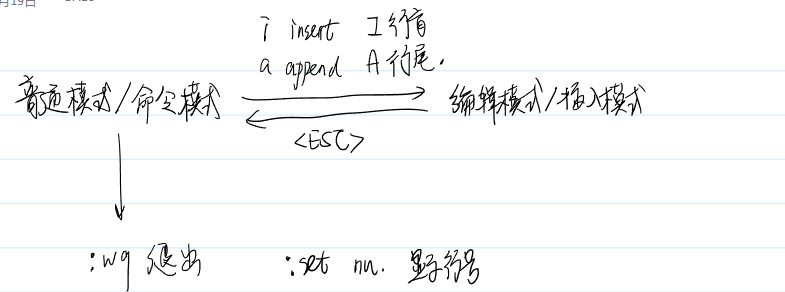 月19日
i insert I 行首
a append A 行尾.
普通模式/命令模式 编辑模式/插入模式
<ESC>
:wq 退出 :set nu. 显示行号